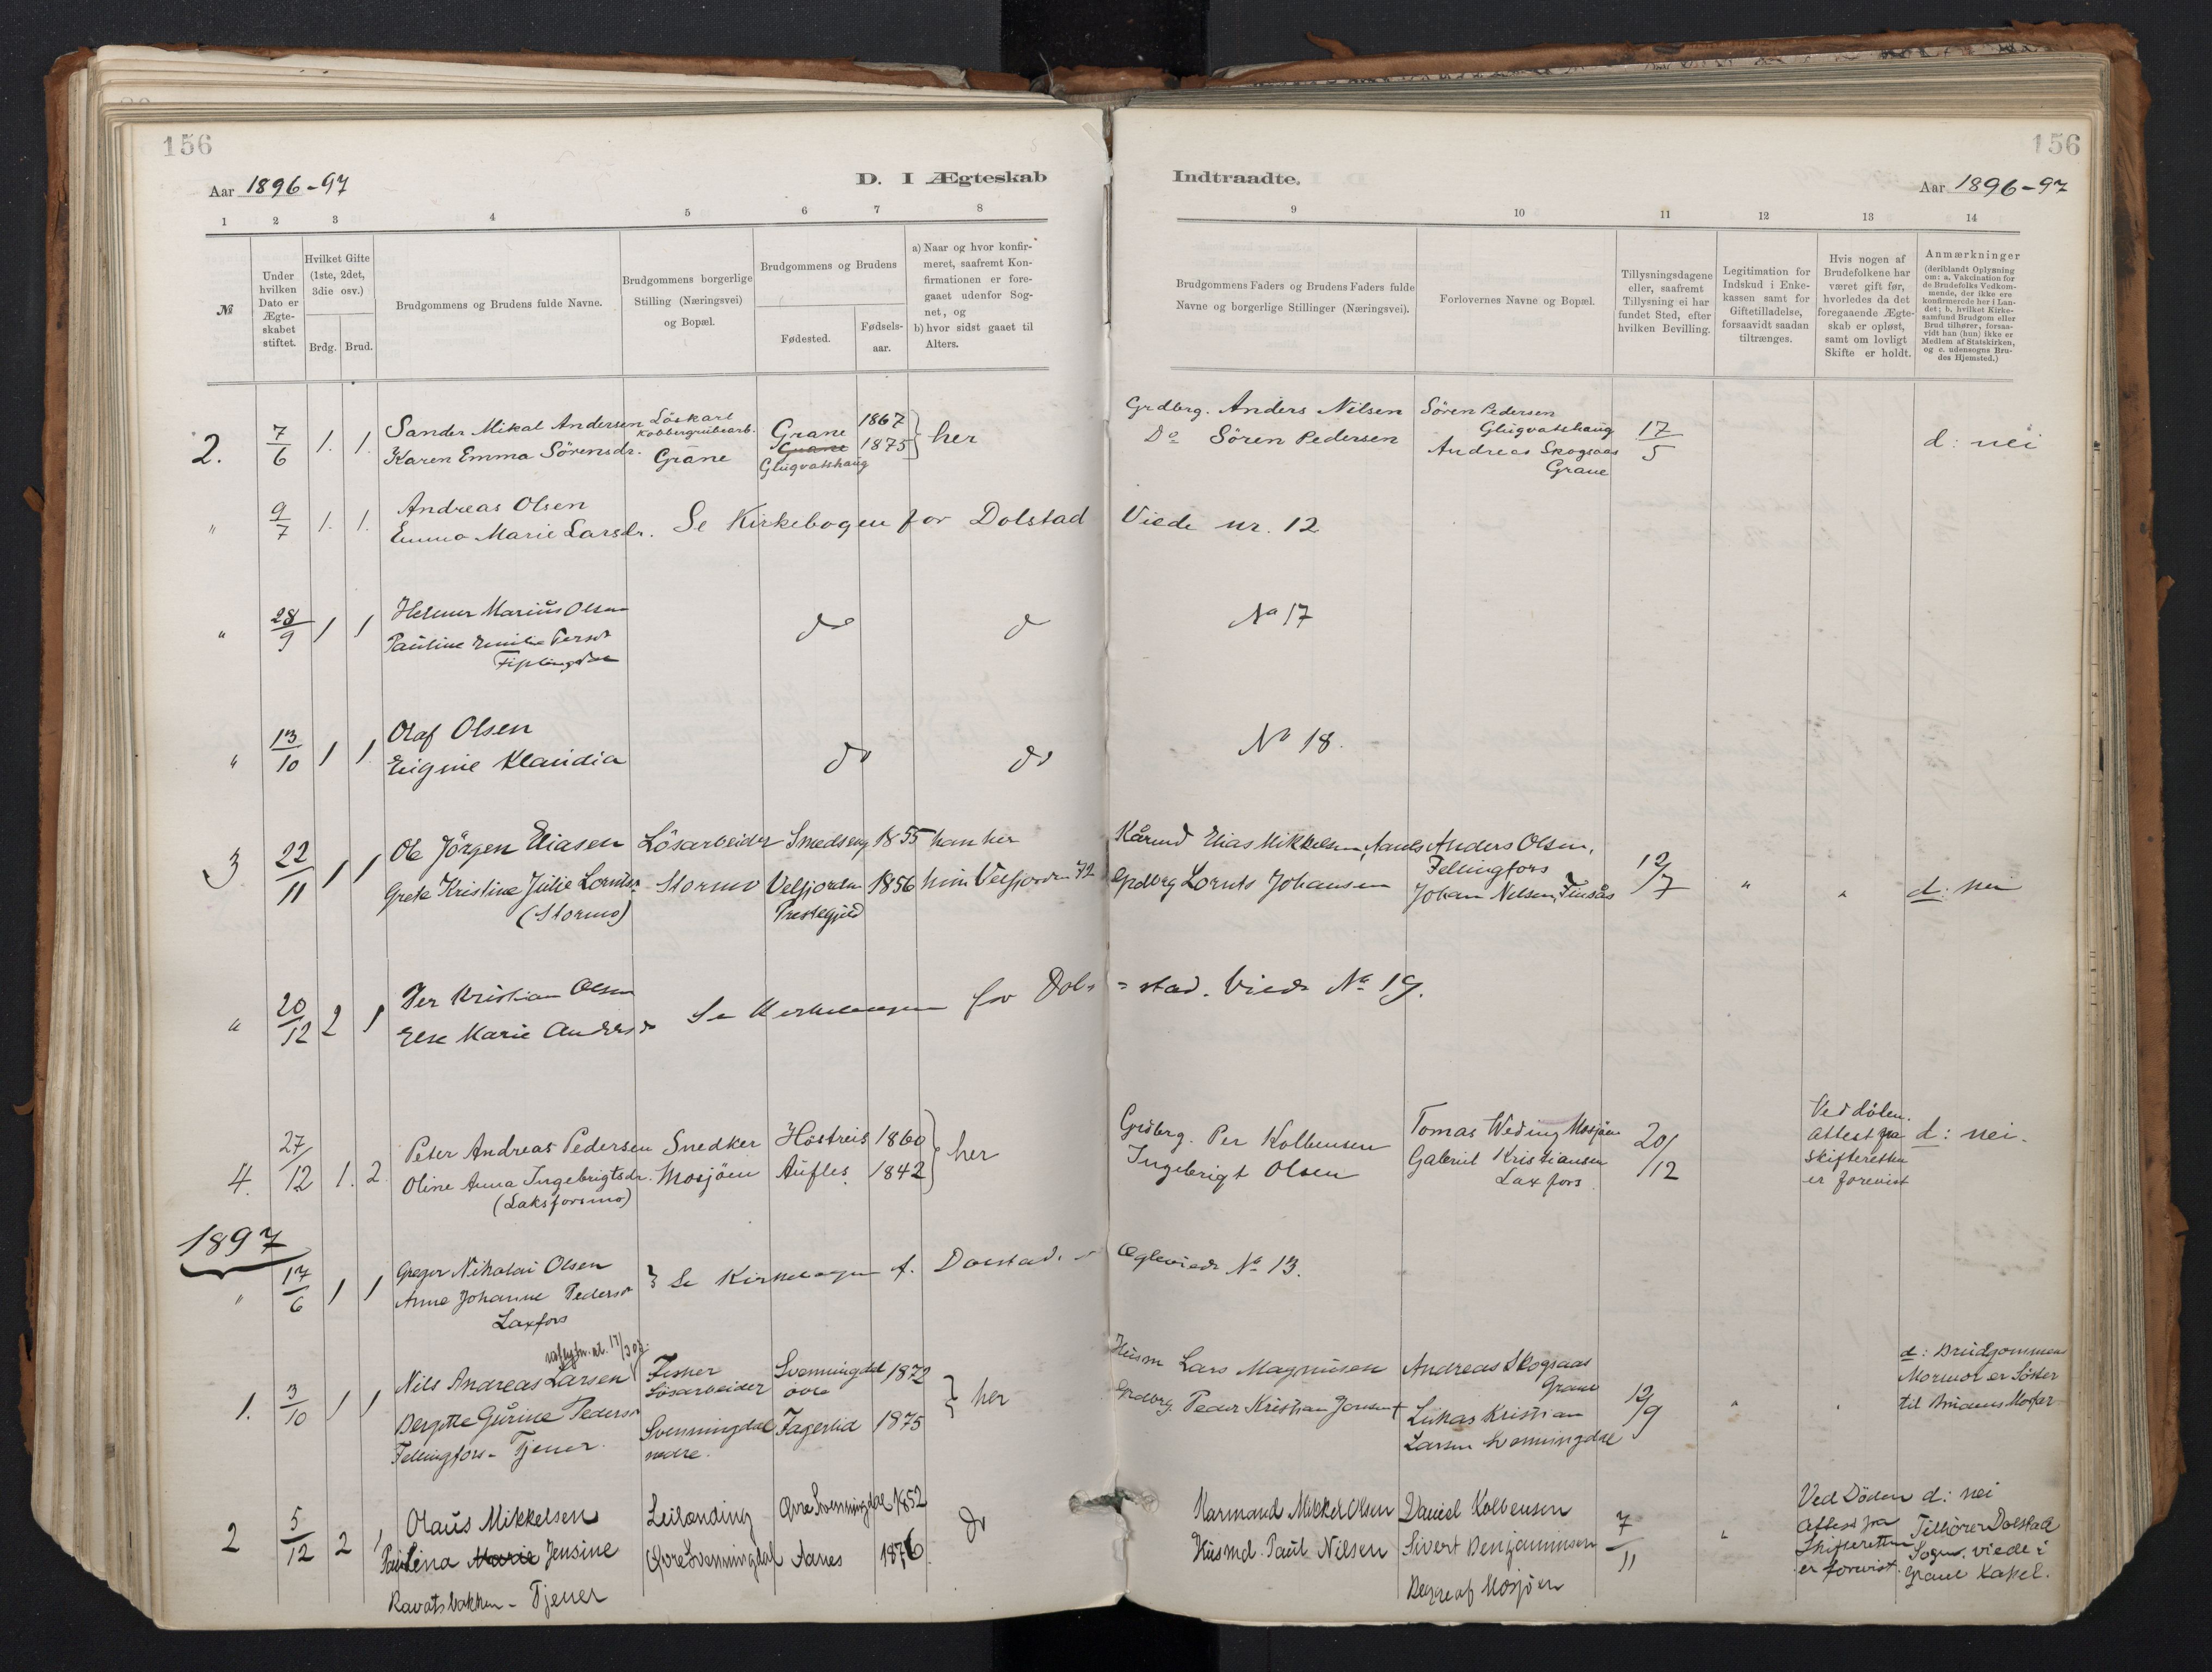 156
156
Aar 1896-97
D. I Ægteskab
Indtraadte.
Aar 1896-97
1 2 3 4 5 6 7 8 9 10 11 12 13 14
№
Under hvilken Dato er Ægte-skabet stiftet.
Hvilket Gifte (1ste, 2det, 3die osv.)
Brdg.
Brud.
Brudgommens og Brudens fulde Navne.
Brudgommens borgerlige Stilling (Næringsvei) og Bopæl.
Brudgommens og Brudens
Fødested.
Fødsels-aar.
a) Naar og hvor konfir-meret, saafremt Kon-firmationen er fore-gaaet udenfor Sog-net, og
b) hvor sidst gaaet til Alters.
Brudgommens Faders og Brudens Faders fulde Navne og borgerlige Stillinger (Næringsvei).
Forlovernes Navne og Bopæl.
Tillysningsdagene eller, saafremt Tillysning ei har fundet Sted, efter hvilken Bevilling.
Legitimation for Indskud i Enke-kassen samt for Giftetilladelse, forsaavidt saadan tiltrænges.
Hvis nogen af Brudefolkene har været gift før, hvorledes da det foregaaende Ægte-skab er opløst, samt om lovligt Skifte er holdt.
Anmærkninger (deriblandt Oplysning om: a. Vakcination for de Brudefolks Vedkom-mende, der ikke ere konfirmerede her i Lan-det; b. hvilket Kirke-samfund Brudgom eller Brud tilhører, forsaa-vidt han (hun) ikke er Medlem af Statskirken, og c. udensogns Bru-des Hjemsted.)
2. 7/6 1. 1. Sander Mikal Andersen Löskarl Kobbergrubearb. Grane 1867 } her Grdbrg. Anders Nilsen Sören Pedersen Glugvatshaug 17/5 d: nei
Karen Emma Sörensdr. Grane Grane Glugvatshaug 1875 Do Sören Pedersen Andreas Skogsaas Grane
" 9/7 1. 1. Andreas Olsen
Emma Marie Larsdr. Se Kirkebogen for Dolstad Viede nr. 12
" 28/9 1 1 Helmer Marius Olsen
Pauline Emilie Persdr do do No 17
Fiplingdal
" 13/10 1 1 Olaf Olsen
Eugine Klaudia do do No 18.
3 22/11 1 1 Ole Jörgen Eliasen Lösarbeider Smedseng 1855 han her Kårmd Elias Mikkelsen, Aanes Anders Olsen, Fellingfors 12/7 " " d: nei
Grete Kristine Julie Lorntsdr Stormo Velfjorden 1856 hun Velfjorden 72 Grdbrg Lornts Johansen Johan Nilsen, Finsås
(Stormo) Prestegjeld
" 20/12 2 1 Per Kristian Olsen
Else Marie Andersdr Se Kirkebogen for Dol- = stad. Viede No 19.
4. 27/12 1. 2. Peter Andreas Pedersen Snedker Höstreis 1860 } her Grdbrg. Per Kolbensen Tomas Weding Mosjöen 20/12 Ved döden. Attest fra Skifteretten er forevist d: nei.
Oline Anna Ingebrigtsdr. Mosjöen Aufles 1842 Ingebrigt Olsen Gabriel Kristiansen Laxfors
(Laksforsmo)
1897
" 17/6 1 1 Greger Nikolai Olsen
Anne Johanne Pedersdr } Se Kirkebogen f. Dolstad. Ægteviede No 13.
Laxfors
1. 3/10 1 1 Nils Andreas Larsen Fisker Lösarbeider Svenningdal övre 1872 } her Husm Lars Magnusen Andreas Skogsaas Grane 12/9 " " d: Brudgommens Mormor er Söster til Brudens Morfar
Bergitte Gurine Pedersdr Svenningdal nedre. Fagerlid 1875 Grdbrg. Peder Kristian Jonsen + Lukas Kristian Larsen Svenningdal
Fellingfors - Tjener.
2 5/12 2 1 Olaus Mikkelsen Leilænding Øvre Svenningdal 1852 do Karmand Mikkel Olsen Daniel Kolbensen 7/11 " Ved Döden Attest fra Skifteretten er forevist. d: nei
Paulina Marie Jensine Øvre Svenningdal Aanes 1876 Husmd. Paul Nilsen Sivert Benjaminsen Begge af Mosjöen Tilhörer Dolstad Sogn. viede i Grane Kapel.
Ravatsbakken - Tjener